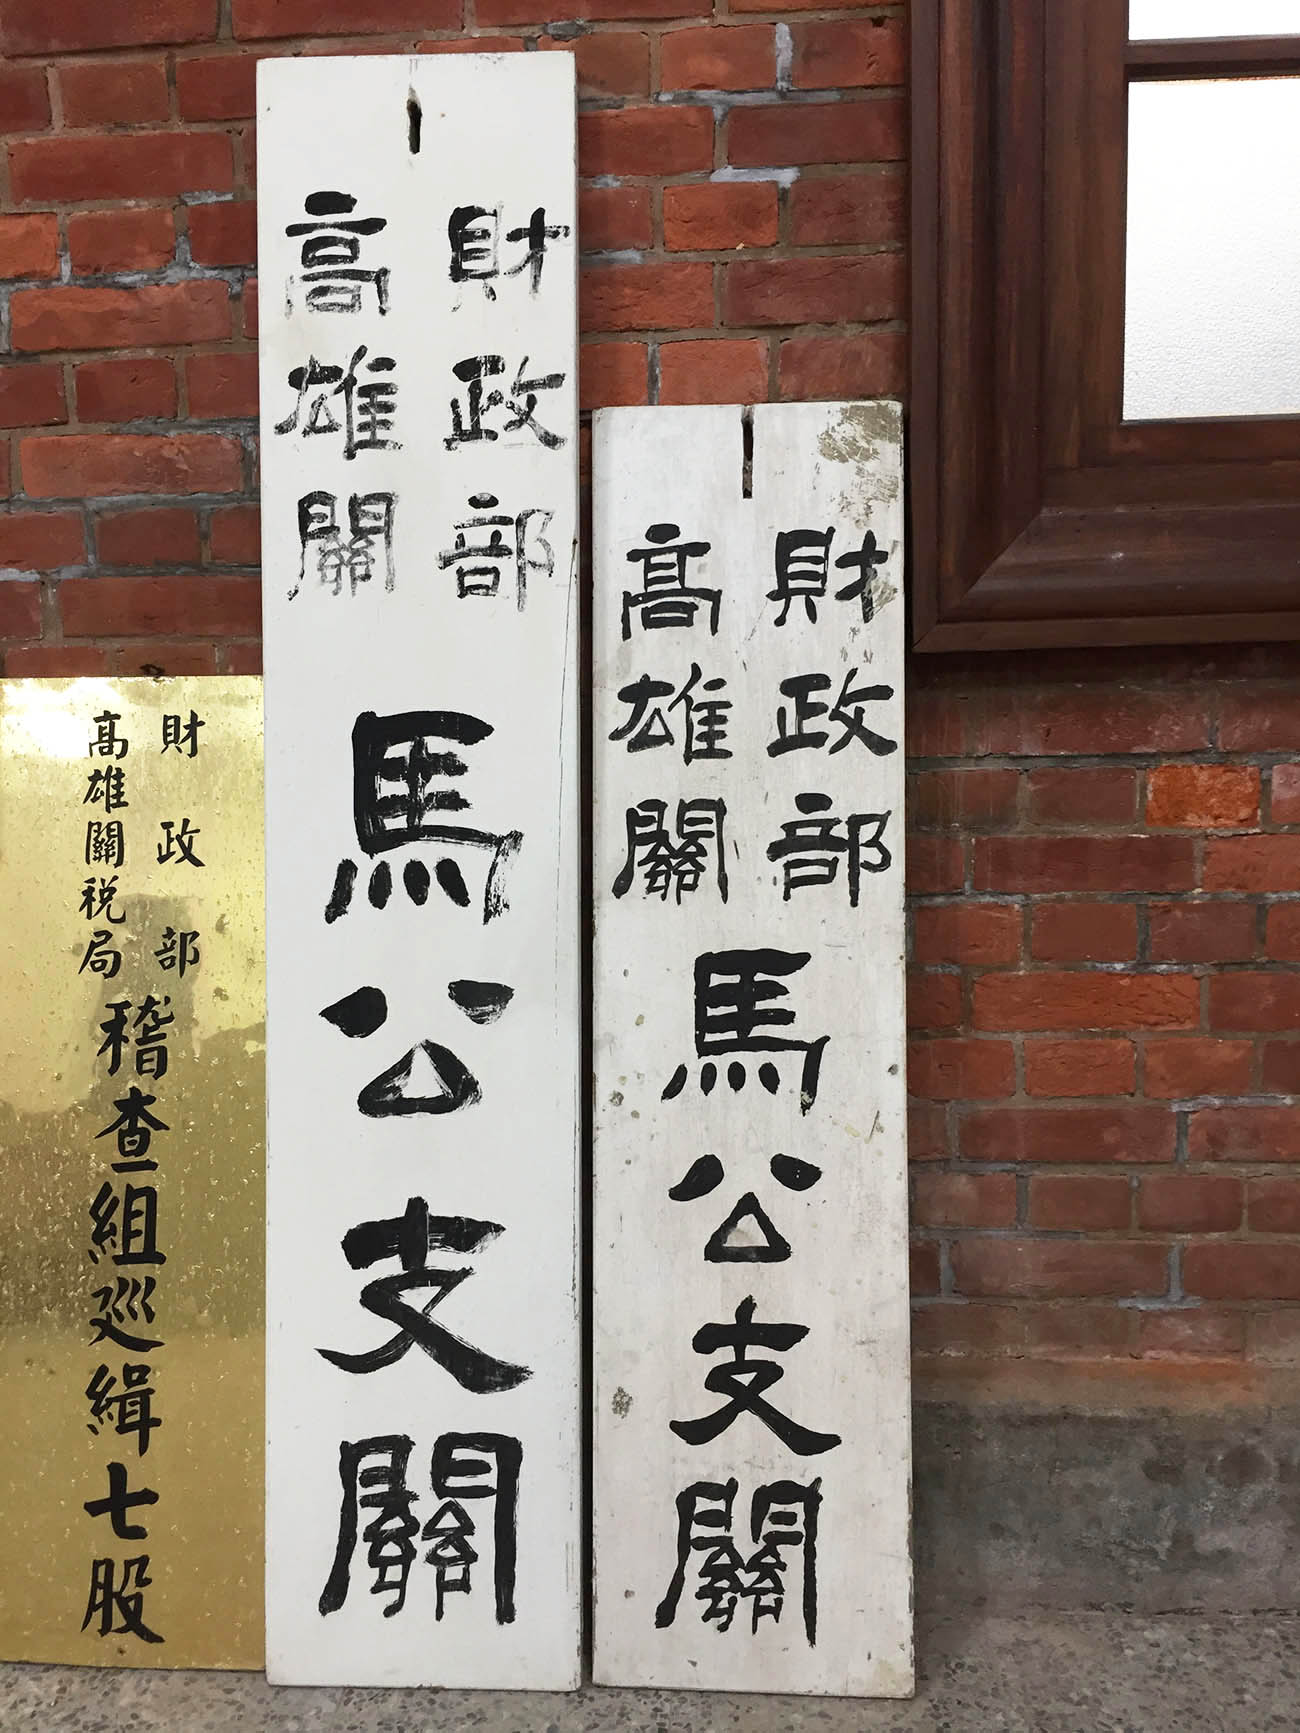 財政部
高雄關稅局
稽查組巡緝七股
財政部
高雄關
馬公支關
財政部
高雄關
馬公支關